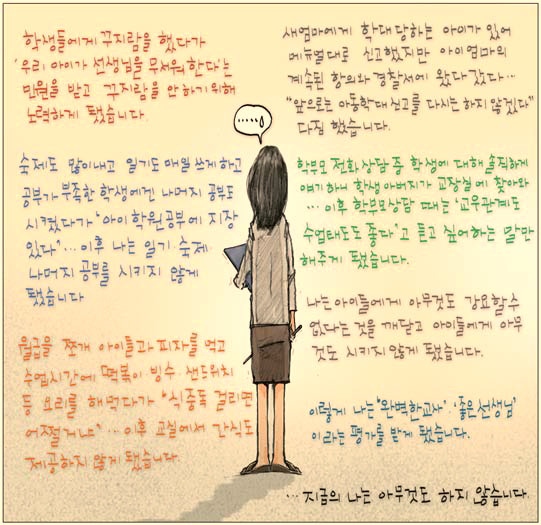 학생들에게 꾸지람을 했다가
'우리 아이가 선생님을 무서워 한다'는
민원을 받고 꾸지람을 안하기 위해
노력하게 됐습니다.
숙제도 많이내고 일기도 매일 쓰게하고
공부가 부족한 학생에겐 나머지 공부도
시켰다가 "아이 학원공부에 지장
있다"… 이후 나는 일기. 숙제.
나머지 공부를 시키지 않게
됐습니다
월급을 쪼개 아이들과 피자를 먹고
수업시간에 떡볶이 빙수 샌드위치
등 요리를 해먹다가 "식중독 걸리면
어쩔거냐"… 이후 교실에서 간식도
제공하지 않게 됐습니다.
……
새엄마에게 학대 당하는 아이가 있어
메뉴얼대로 신고했지만 아이 엄마의
계속된 항의와 경찰서에 왔다 갔다…
"앞으로는 아동학대 신고를 다시는 하지 않겠다"
다짐 했습니다.
학부모 전화상담 중 학생에 대해 솔직하게
얘기 하니 학생 아버지가 교장실에 찾아와
… 이후 학부모상담 때는 '교우관계도
수업태도도 좋다'고 듣고 싶어하는 말만
해주게 됐습니다.
나는 아이들에게 아무것도 강요할 수
없다는 것을 깨닫고 아이들에게 아무
것도 시키지 않게 됐습니다.
이렇게 나는 "완벽한교사". '좋은선생님'
이라는 평가를 받게 됐습니다.
…지금의 나는 아무것도 하지 않습니다.